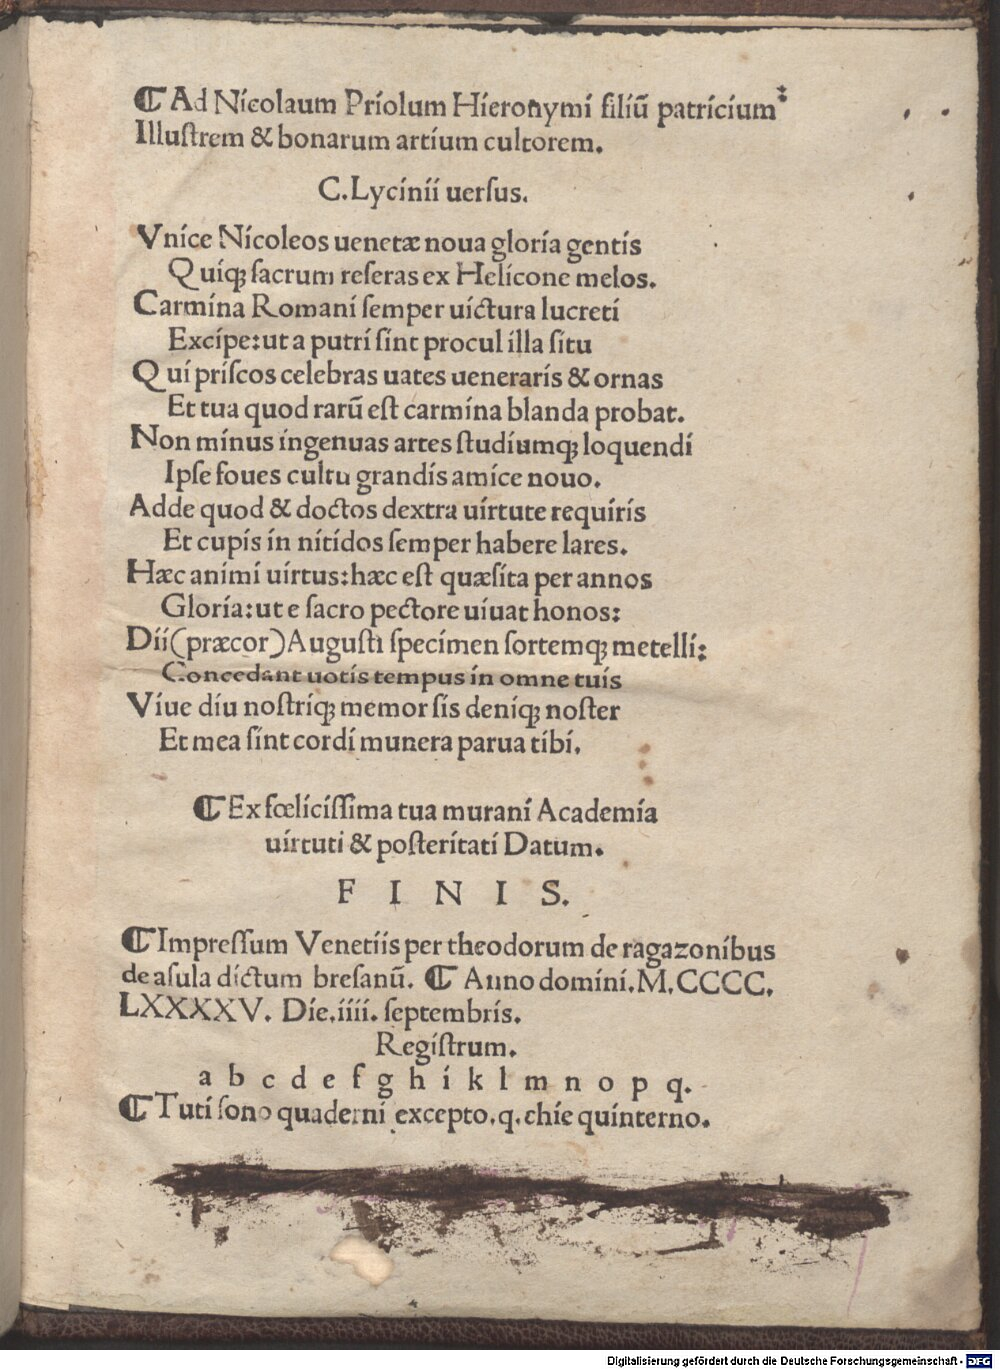 ¶ Ad Nicolaum Priolum Hieronymi filiū patricium:
Illuſtrem & bonarum artium cultorem.
C. Lycinii uerſus.
Vnice Nicoleos uenetæ noua gloria gentis
Quiq; ſacrum reſeras ex Helicone melos.
Carmina Romani ſemper uictura lucreti
Excipe: ut a putri ſint procul illa ſitu
Qui priſcos celebras uates ueneraris & ornas
Et tua quod rarū eſt carmina blanda probat.
Non minus ingenuas artes ſtudiumq; loquendi
Ipſe foues cultu grandis amice nouo.
Adde quod & doctos dextra uirtute requiris
Et cupis in nitidos ſemper habere lares.
Hæc animi uirtus: hæc eſt quæſita per annos
Gloria: ut e ſacro pectore uiuat honos:
Dii (præcor) Auguſti ſpecimen ſortemq; metelli:
Concedant uotis tempus in omne tuis
Viue diu noſtriq; memor ſis deniq; noſter
Et mea ſint cordi munera parua tibi.
¶ Ex fœliciſſima tua murani Academia
uirtuti & poſteritati Datum.
F I N I S.
¶ Impreſſum Venetiis per theodorum de ragazonibus
de aſula dictum breſanū. ¶ Anno domini. M. CCCC.
LXXXXV. Die. iiii. ſeptembris.
Regiſtrum.
a b c d e f g h i k l m n o p q.
¶ Tuti ſono quaderni excepto. q. chie quinterno.
Digitalisierung gefördert durch die Deutsche Forschungsgemeinschaft - DFG